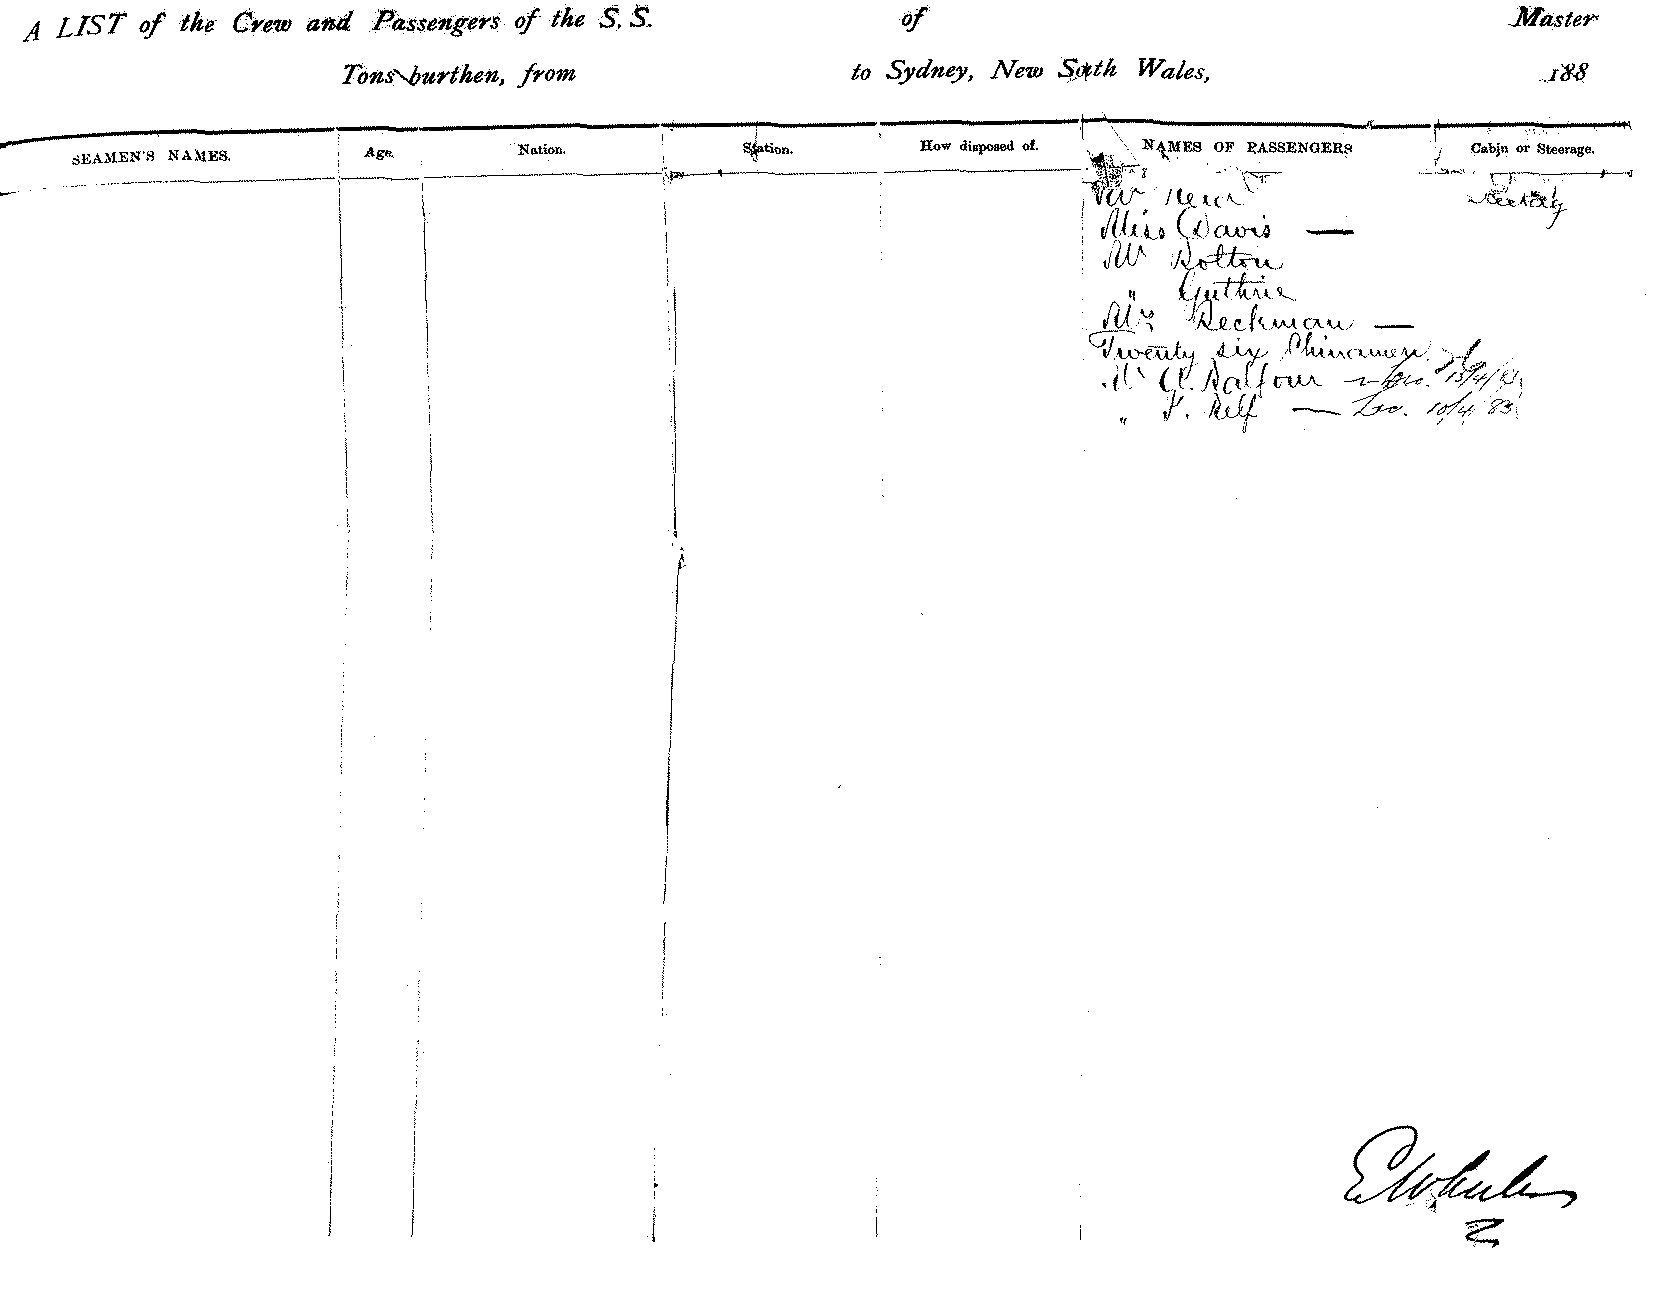 A LIST of the Crew and Passengers of the S.S. of Master
Tons burthen, from to Sydney, New South Wales, 188
SEAMEN'S NAMES. Age. Nation. Station. How disposed of. NAMES OF PASSENGERS Cabin or Steerage.
Mr
Miss Davis —
Mr Bolton
" Guthrie
Mrs Beckman —
Twenty six Chinamen
Mr Balfour —
" F. Relf — 10/4/83